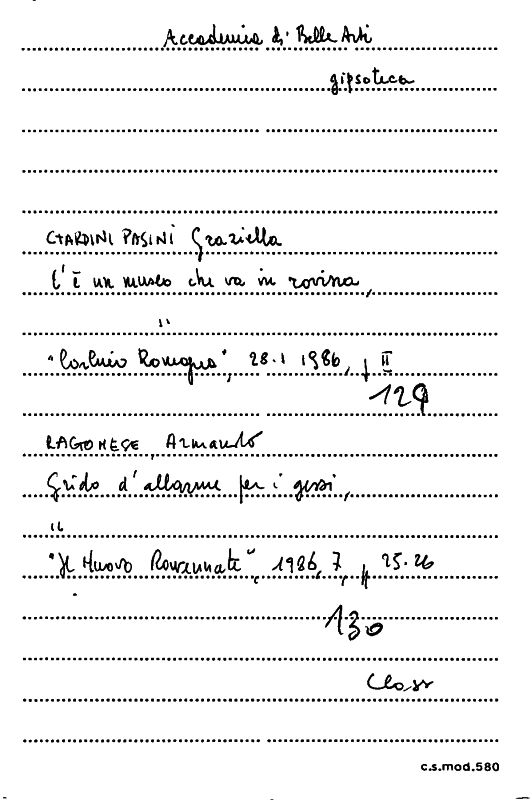 Accademia di Belle Arti
gipsoteca
CIARDINI PASINI Graziella
C'è un museo che va in rovina,
"
" Romagna", 28.1 1986, p II
129
RAGONESE, Armando
Grido d'allarme per i gessi,
"
"Il Nuovo Ravennate", 1986, 7, p 25-26
130
c.s.mod.580